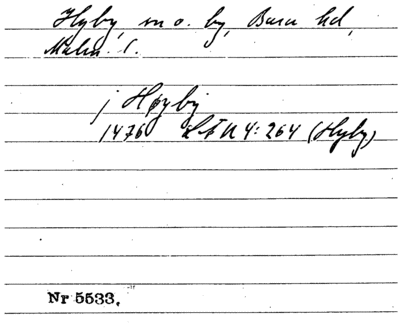 Hyby, sn o. by, Bara hd,
Malm. l.
j Høyby
1476 LÅU 4: 264 (Hyby)
Nr 5533,